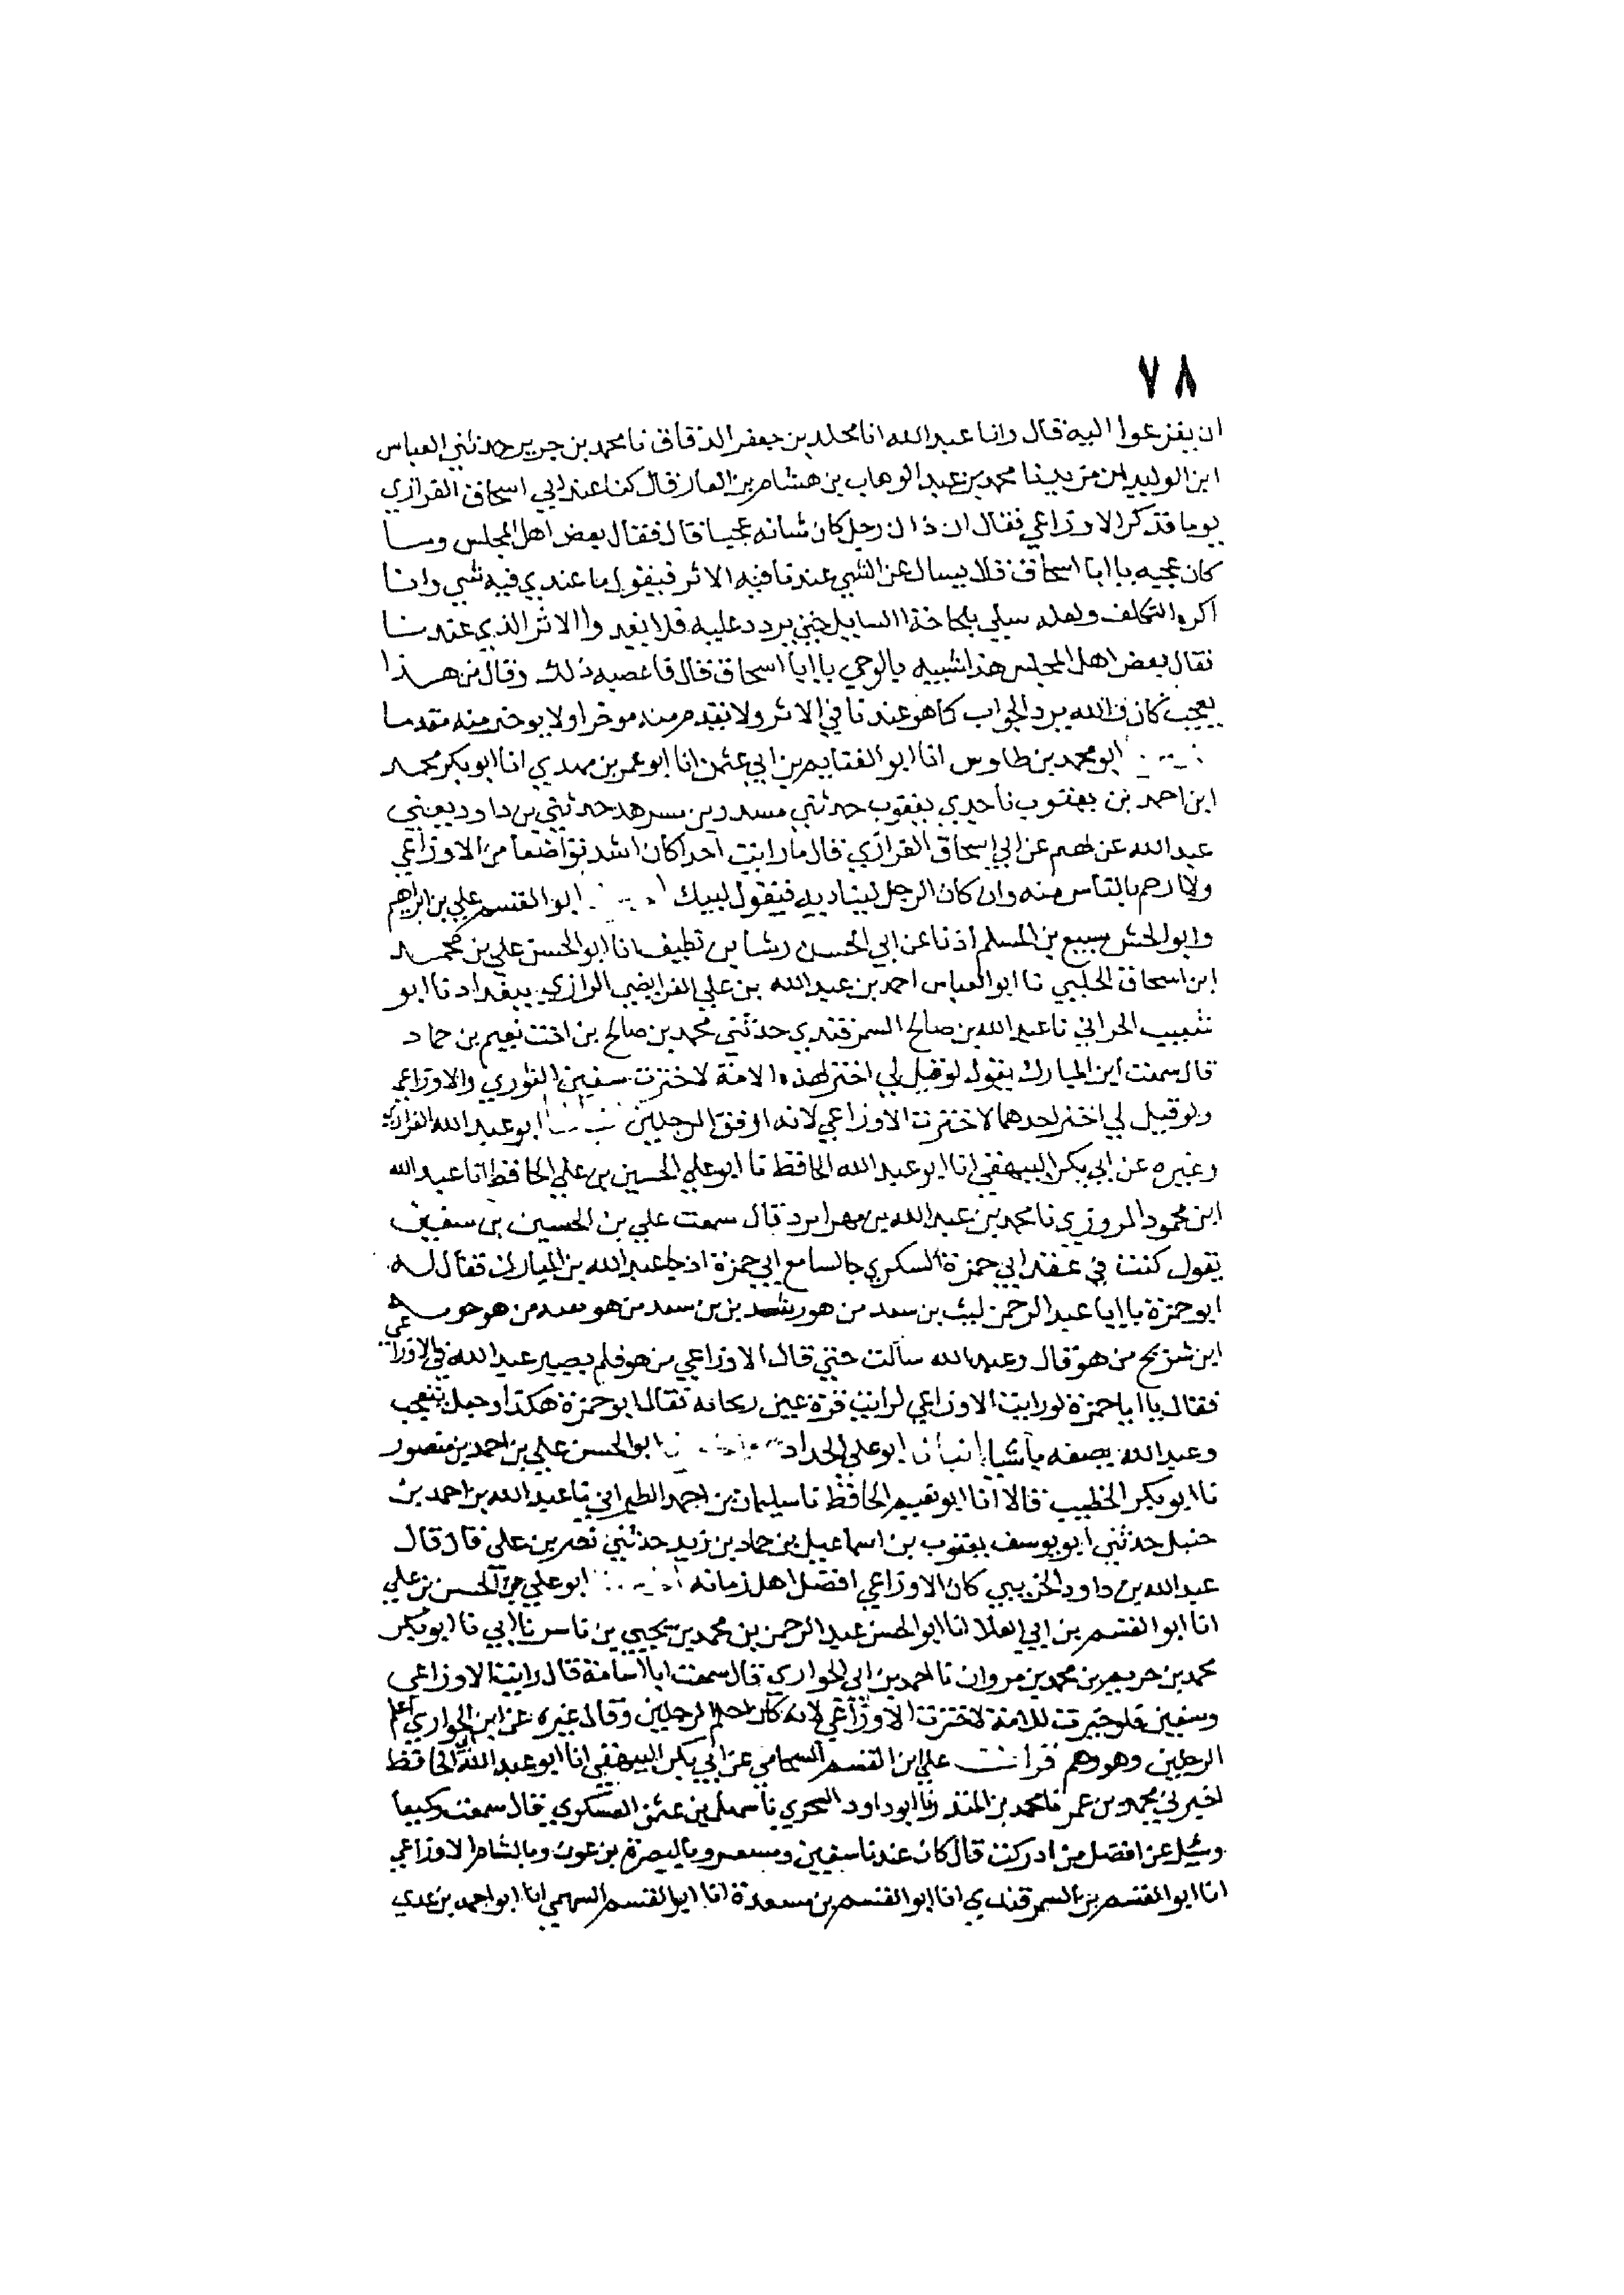 ٧٨
ان يفزعوا اليه قال وانا عبد الله انا مخلد بن جعفر الدقاق نا محمد بن جرير حدثني العباس
ابن الوليد ابن مزيد نا محمد بن عبد الوهاب بن هشام بن الغاز قال كنا عند ابي اسحاق الفزازي
يوما فذكر الاوزاعي فقال ان ذاك رجل كان شانه عجبا قال فقال بعض اهل المجلس وما
كان عجبه يا ابا اسحاق قال يسال عن الشي عندنا فيه الاثر فيقول ما عندي فيه شي وانا
اكره التكلف ولعله يبتلي بلجاجة السايل حتي يردد عليه فلا يعدوا الاثر الذي عندنا
فقال بعض اهل المجلس هذا شبيه بالوحي يا ابا اسحاق قال فاغضبه ذلك وقال من هذا
يعجب كان والله يرد الجواب كما هو عندنا في الاثر ولا يقدم منه موخرا ولا يوخر منه مقدما
ابو محمد بن طاوس انا ابو الغنايم بن ابي عثمن انا ابو عمر بن مهدي انا ابو بكر محمد
ابن احمد بن يعقوب نا جدي يعقوب حدثني مسدد بن مسرهد حدثني بن داود يعني
عبد الله عن لهم عن ابي اسحاق الفزازي قال ما رايت احدا كان اشد تواضعا من الاوزاعي
ولا ارحم بالناس منه وان كان الرجل ليناديه فيقول لبيك ابو القسم علي بن ابراهيم
وابو الحسن سبيع بن المسلم اذنا عن ابي الحسن رشا بن نظيف انا ابو الحسن علي بن محمد
ابن اسحاق الحلبي نا ابو العباس احمد بن عبيد الله بن علي الفرايضي الرازي ببغداد نا ابو
شبيب الحراني نا عبد الله بن صالح السمرقندي حدثني محمد بن صالح بن اخت نعيم بن حماد
قال سمعت ابن المبارك يقول لو قيل لي اختر لهذه الامة لاخترت سفين الثوري والاوزاعي
ولو قيل لي اختر احدهما لاخترت الاوزاعي لانه ارفق الرجلين ابو عبد الله الفراوي
وغيره عن ابي بكر البيهقي انا ابو عبد الله الحافظ نا ابو علي الحسين بن علي الحافظ انا عبد الله
ابن محمود المروزي نا محمد بن عبد الله بن قال سمعت علي بن الحسين بن سفيف
يقول كنت في ابي حمزة السكري جالسا مع ابي حمزة اذ جا عبد الله بن المبارك فقال له
ابو حمزة يا ابا عبد الرحمن ليث بن سعد من هو بن سعد من هو من هو حيوة
ابن شريح من هو قال وعبد الله ساكت حتي قال الاوزاعي من هو فلم يصبر عبد الله في الاوزاعي
فقال يا ابا حمزة لو رايت الاوزاعي لرايت قرة عين ريحانه فقال ابو حمزة هكذا وجعل يتعجب
وعبد الله يصفه باشيا انبانا ابو علي الحداد ابو الحسن علي بن احمد بن منصور
نا ابو بكر الخطيب قالا انا ابو نعيم الحافظ نا سليمان بن احمد الطبراني نا عبد الله بن احمد بن
حنبل حدثني ابو يوسف يعقوب بن اسماعيل بن حماد بن زيد حدثني نصر بن علي قال قال
عبد الله بن داود الخريبي كان الاوزاعي افضل اهل زمانه ابو علي الحسن بن علي
انا ابو القسم بن ابي العلا انا ابو الحسن عبد الرحمن بن محمد بن يحيي بن ناسر نا ابي نا ابو بكر
محمد بن خريم بن محمد بن مروان نا احمد بن ابي الحواري قال سمعت ابا اسامة قال رايت الاوزاعي
وسفين فلو خيرت للامة لاخترت الاوزاعي لانه كان احلم الرجلين وقال غيره عن ابن الحواري اعلم
الرجلين وهو وهم قرات علي ابن القسم الشحامي عن ابي بكر البيهقي انا ابو عبد الله الحافظ
اخبرني محمد بن عمر نا محمد بن المنذر نا ابو داود السجزي نا سهل بن عثمن العسكري قال سمعت وكيعا
وسئل عن افضل من ادركت قال كان عندنا سفين ومسعر وبالبصرة بن عون وبالشام الاوزاعي
انا ابو القسم بن السمرقندي انا ابو القسم بن مسعدة انا ابو القسم السهمي انا ابو احمد بن عدي